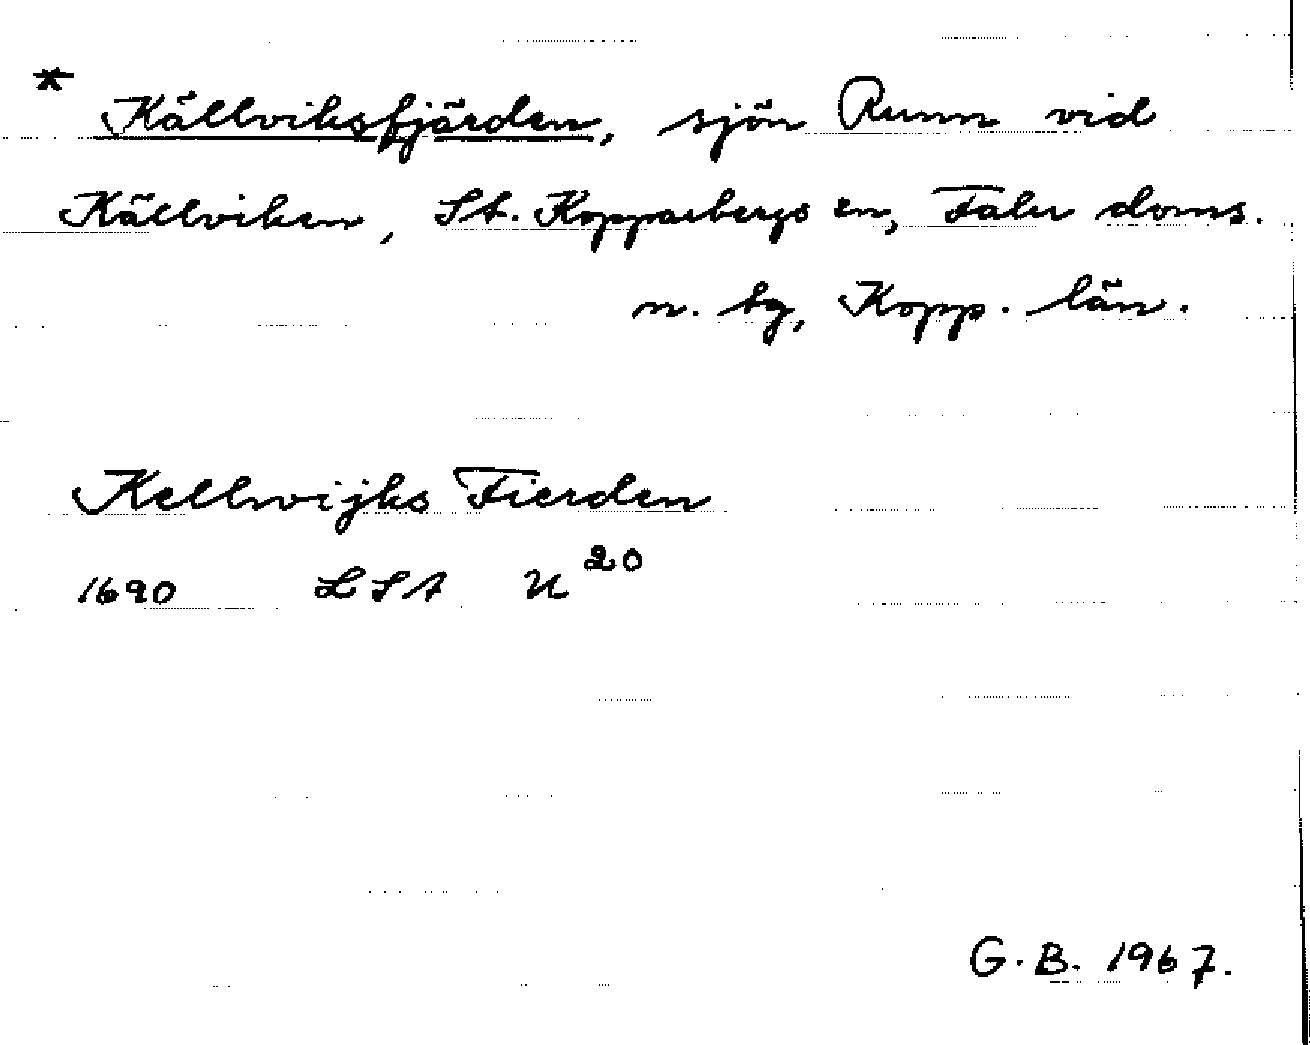 * Källviksfjärden, sjön Runn vid
Källviken, St. Kopparbergs sn, Falu doms.
n. tg, Kopp. län.
Kellwijks Fierden
1690 LSA U²⁰
G. B. 1967.